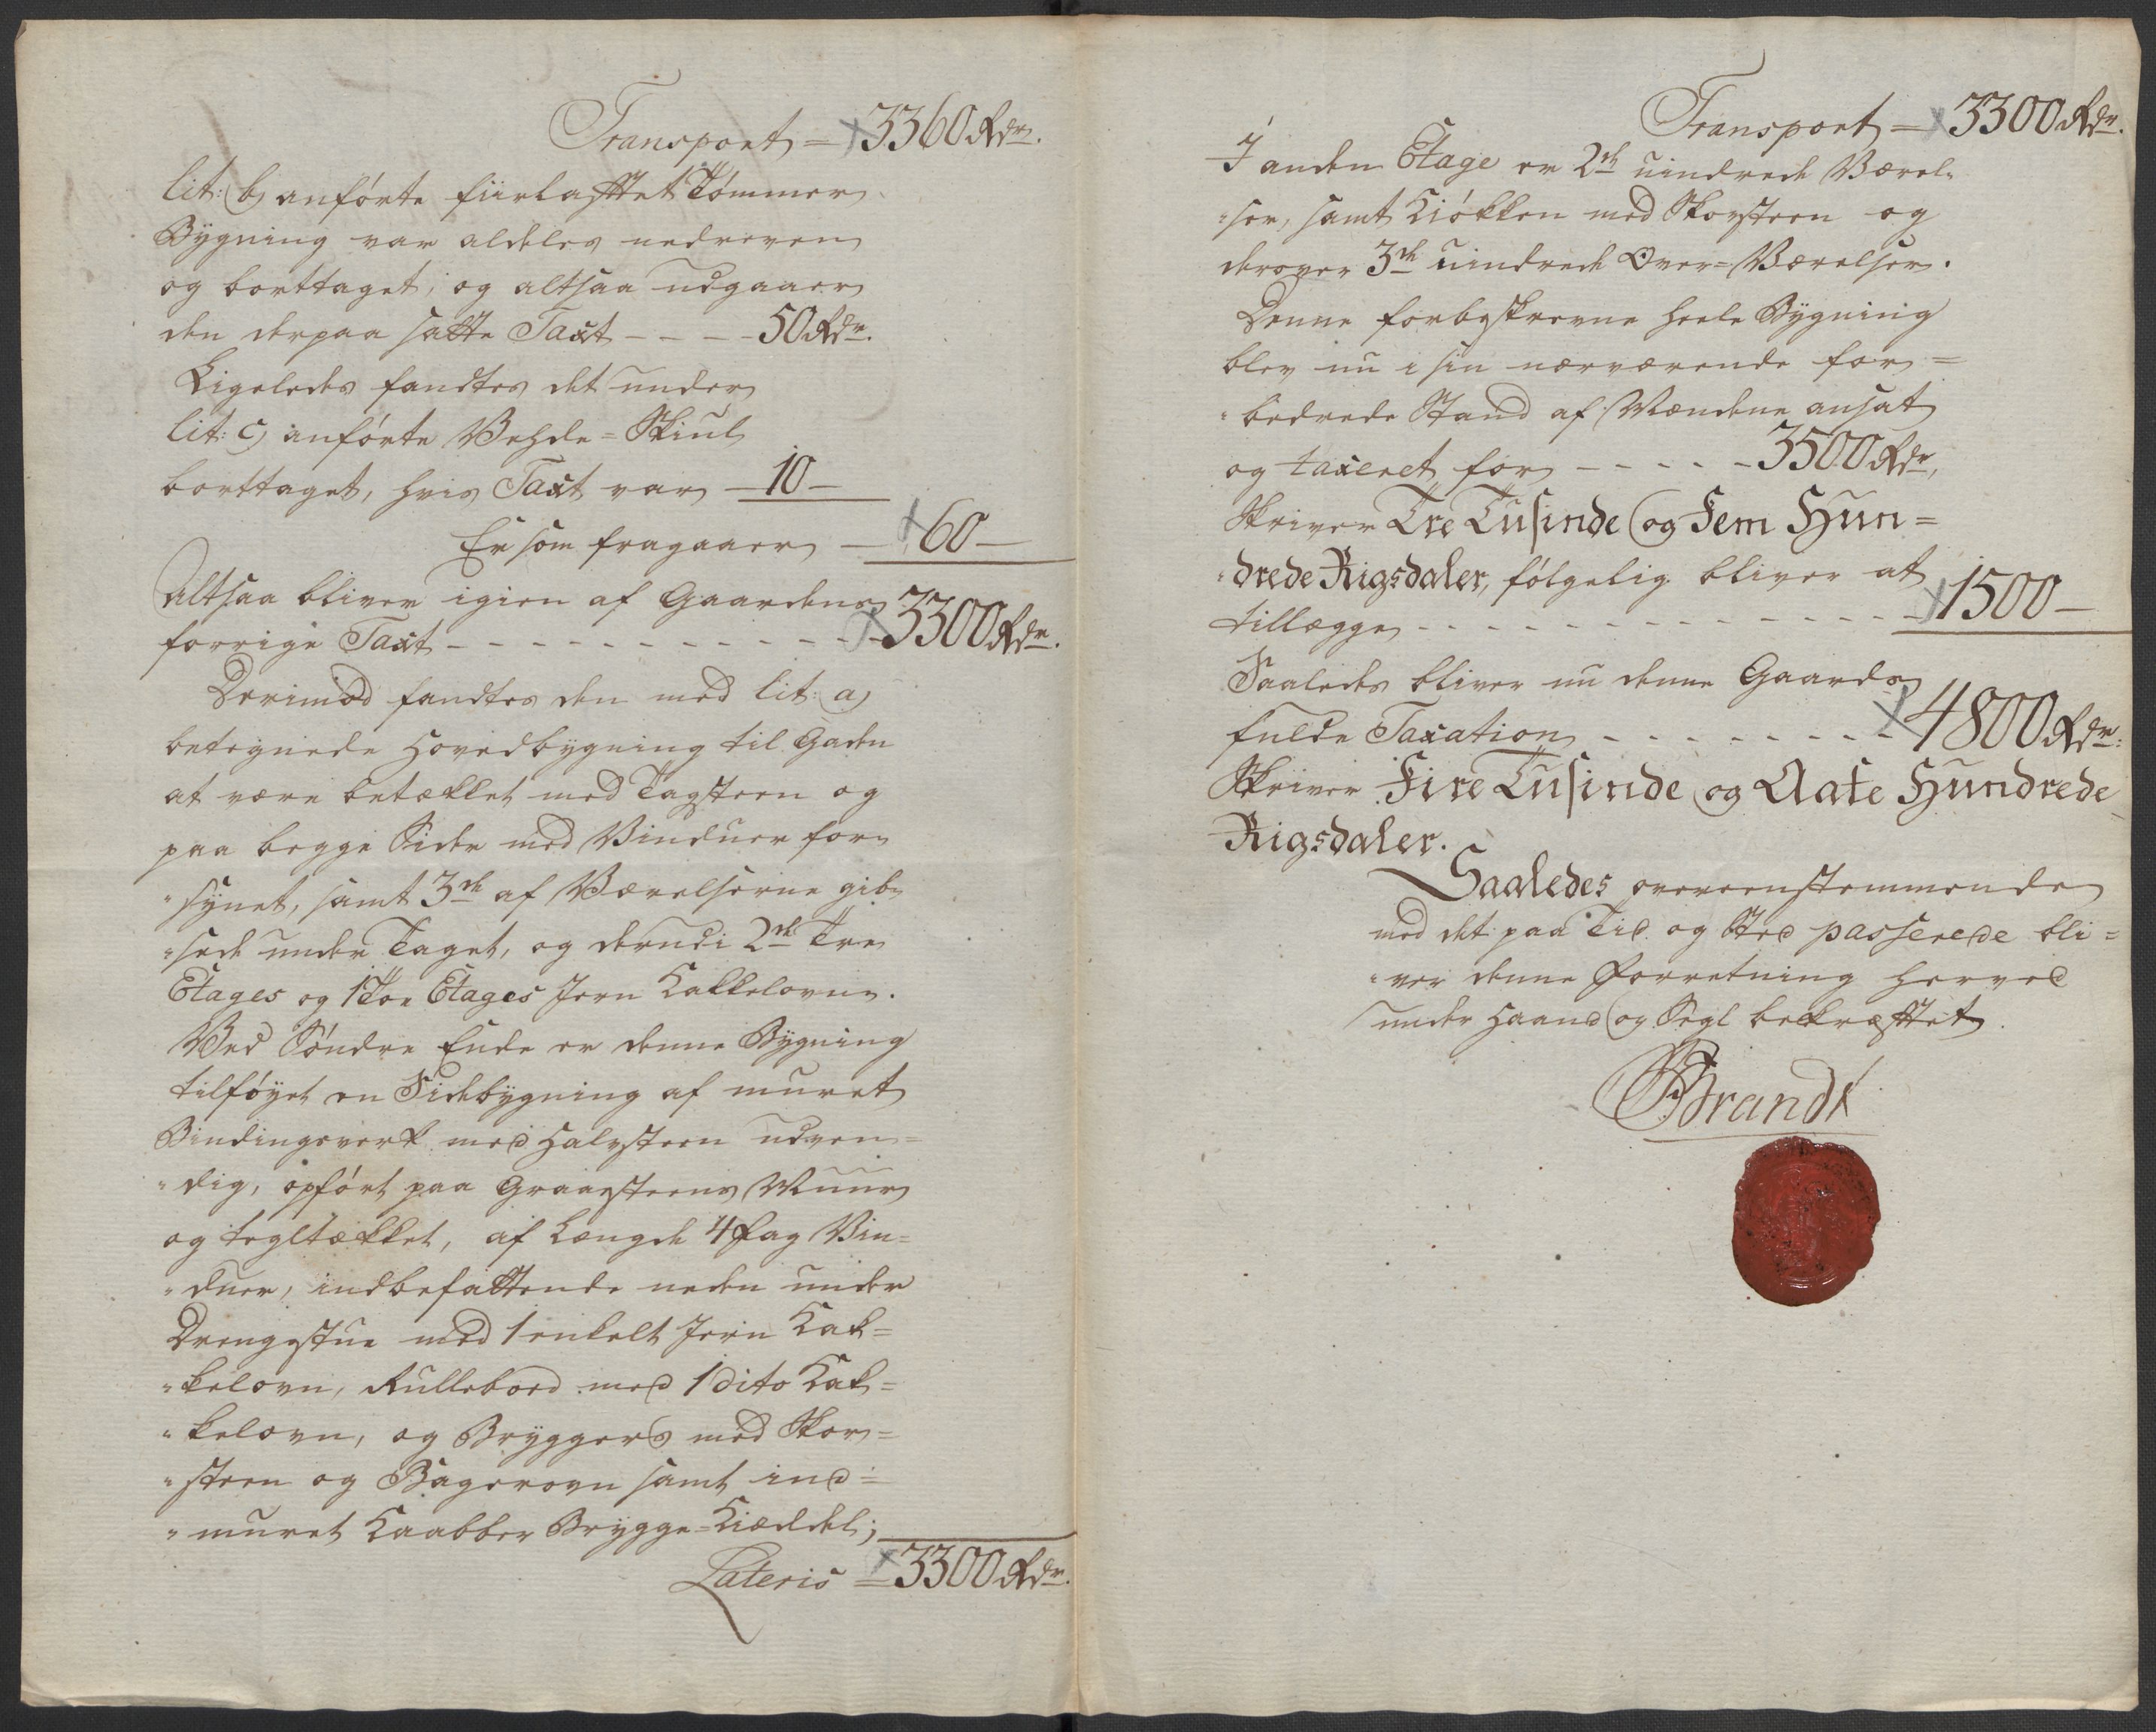 Transport = 3360 Rdr.
lit: b) anförte fiirlaftet Tömmer
Bÿgning var aldeles nedreven
og borttaget; og altsaa udgaaer
den derpaa satte Taxt - - - - 50 Rdr.
Ligeledes fandtes det under
lit: c) anförte Vehde-Skiul
borttaget, hvis Taxt var — 10 —
Er som fragaaer — 60 —
Altsaa bliver igien af Gaardens
forrige Taxt - - - - - - - - - - 3300 Rdr.
Derimod fandtes den med lit: a)
betegnede Hovedbÿgning til Gaden
at være betækket med Tagsteen og
paa begge Sider med Vinduer for-
"sÿnet, samt 3de af Værelserne gib-
"sede under Taget, og derudi 2de Tre
Etages og 1 Toe Etages Jern Kakkelovne.
Ved Söndre Ende er denne Bÿgning
tilföÿet en Sidebÿgning af muret
Bindingsverk med Halvsteen udven=
"dig, opfört paa Graaesteens Muur
og tegltækket, af Længde 4 Fag Vin=
"duer, indbefattende neden under
Drengestue med 1 enkelt Jern Kak=
"kelovn, Rullebord med 1 dito Kak=
"kelovn, og Brÿggers med Skor=
"steen og Bagerovn samt ind=
"muret Kaabber Brÿgge-Kiæddel;
Lateris = 3300 Rdr.
Transport = 3300 Rdr.
I anden Etage er 2de uindrede Værel-
"ser, samt Kiökken med Skorsteen og
derover 3de uindrede Over-Værelser.
Denne forbeskrevne heele Bÿgning
blev nu i sin nærværende for=
"bedrede Stand af Mændene ansat
og taxeret for - - - - - 3500 Rdr,
Skriver Tre Tusinde og Fem Hun=
"drede Rigsdaler, fölgelig bliver at
tillægge - - - - - - - - - - - - 1500 —
Saaledes bliver nu denne Gaards
fulde Taxation - - - - - - - - 4800 Rdr:
Skriver Fire Tusinde og Aate Hundrede
Rigsdaler.
Saaledes overeenstemmende
med det paa Tid og Sted passerede bli=
"ver denne Forretning herved
under Haand og Segl bekræftet.
Brandt